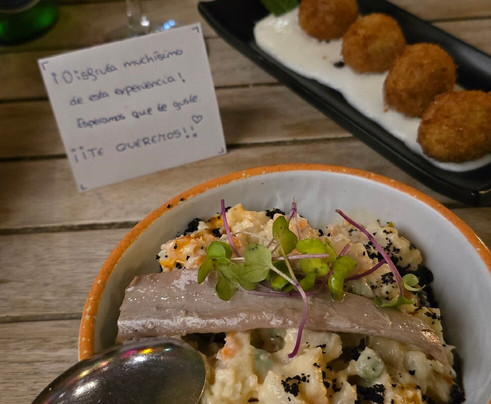 ¡Disfruta muchísimo
de esta experiencia!
Esperamos que te guste
¡¡TE QUEREMOS!! ♡